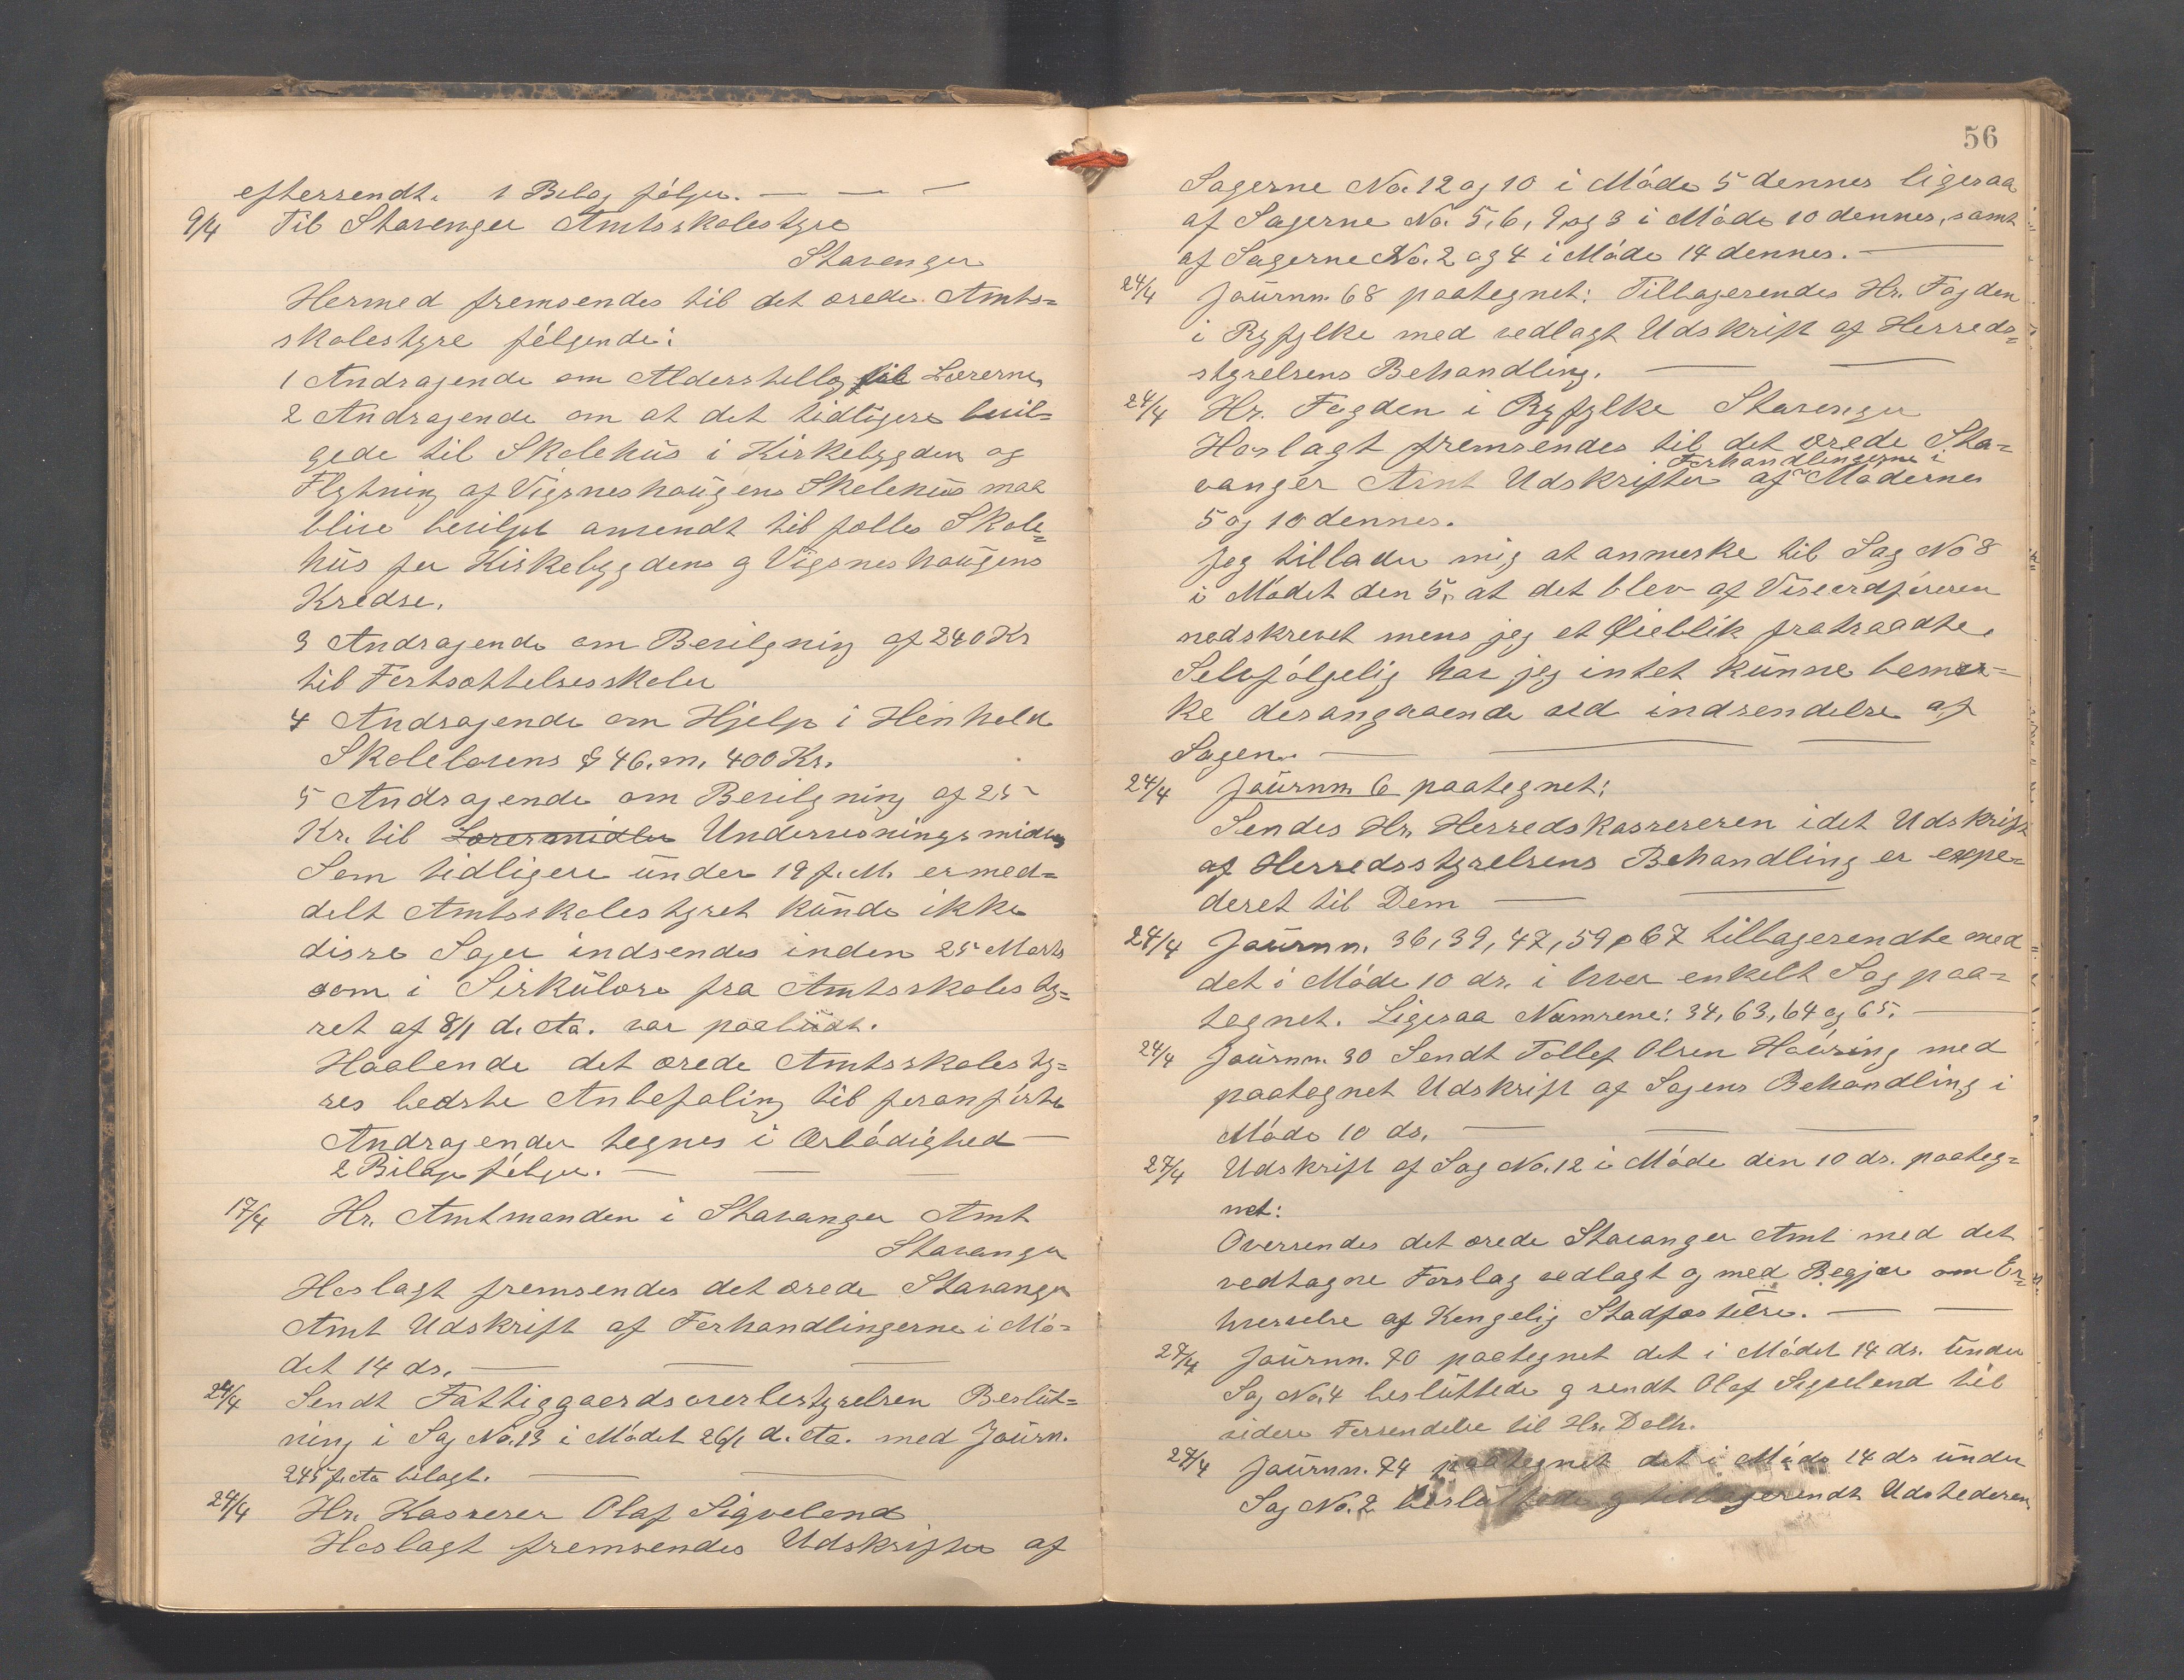 eftersendt. 1 Bilag følger. — — —
9/4 Til Stavanger Amtsskolestyre
Stavanger
Hermed fremsendes til det ærede Amts=
skolestyre følgende:
1 Andragende om Alderstillæg til Lærerne
2 Andragende om at det tidligere bevil=
gede til Skolehus i Kirkebygden og
Flytning af Vigsneshaugens Skolehus maa
blive bevilget anvendt til fælles Skole=
hus for Kirkebygdens og Vigsneshaugens
Kredse.
3 Andragende om Bevilgning af 240 Kr
til Fortsættelsesskoler
4 Andragende om Hjelp i Henhold
Skolelovens § 46. m. 400 Kr.
5 Andragende om Bevilgning af 25
Kr. til Læremidler Undervisningsmidler
Som tidligere under 19 f. M. er med=
delt Amtsskolestyret kunde ikke
disse Sager indsendes inden 25 Marts
som i Sirkulære fra Amtsskolesty=
ret af 8/1 d. Aa. var paabudt.
Haabende det ærede Amtsskolesty=
res bedste Anbefaling til foranførte
Andragender tegnes i Ærbødighed —
2 Bilage følger. — —
17/4 Hr. Amtmanden i Stavanger Amt
Stavanger
Hoslagt fremsendes det ærede Stavanger
Amt Udskrift af Forhandlingerne i Mø=
det 14 ds. — — —
24/4 Sendt Fattiggaardsoverbestyrelsen Beslut=
ning i Sag No. 13 i Mødet 26/1 d. Aa. med Journ.
245 f. Aa bilagt. — —
24/4 Hr. Kasserer Olaf Sigveland
Hoslagt fremsendes Udskrifter af
56
Sagerne No. 12 og 10 i Møde 5 dennes ligesaa
af Sagerne No. 5, 6, 9 og 3 i Møde 10 dennes, samt
af Sagerne No. 2 og 4 i Møde 14 dennes. —
24/4 Journn. 68 paategnet: Tilbagesendes Hr. Fogden
i Ryfylke med vedlagt Udskrift af Herreds=
styrelsens Behandling. — —
24/4 Hr. Fogden i Ryfylke Stavanger
Hoslagt fremsendes til det ærede Sta=
Forhandlingerne i
vanger Amt Udskrifter af Møderne
5 og 10 dennes.
Jeg tillader mig at anmerke til Sag No 8
i Mødet den 5, at det blev af Viseordføreren
nedskrevet mens jeg et Øieblik fratraadte.
Selvfølgelig har jeg intet kunne bemer=
ke derangaaende ved indsendelse af
Sagen. — — —
24/4 Journn. 6 paategnet:
Sendes Hr. Herredskassereren idet Udskrift
af Herredsstyrelsens Behandling er expe=
deret til Dem — —
24/4 Journn. 36, 39, 47, 59 o 67 tilbagesendte med
det i Møde 10 ds. i hver enkelt Sag paa=
tegnet. Ligesaa Numrene: 34, 63, 64 og 65. —
24/4 Journn. 30 Sendt Tollef Olsen Housing med
paategnet Udskrift af Sagens Behandling i
Møde 10 ds. — — —
27/4 Udskrift af Sag No. 12 i Møde den 10 ds. paateg=
net:
Oversendes det ærede Stavanger Amt med det
vedtagne Forslag vedlagt og med Begjær om Er=
hvervelse af Kongelig Stadfæstelse. — —
27/4 Journn. 70 paategnet det i Mødet 14 ds. under
Sag No. 4 besluttede og sendt Olaf Sigveland til
videre Forsendelse til Hr. Dolh.
27/4 Journn. 74 paategnet det i Møde 14 ds under
Sag No. 2 besluttede og tilbagesendt Udstederen.